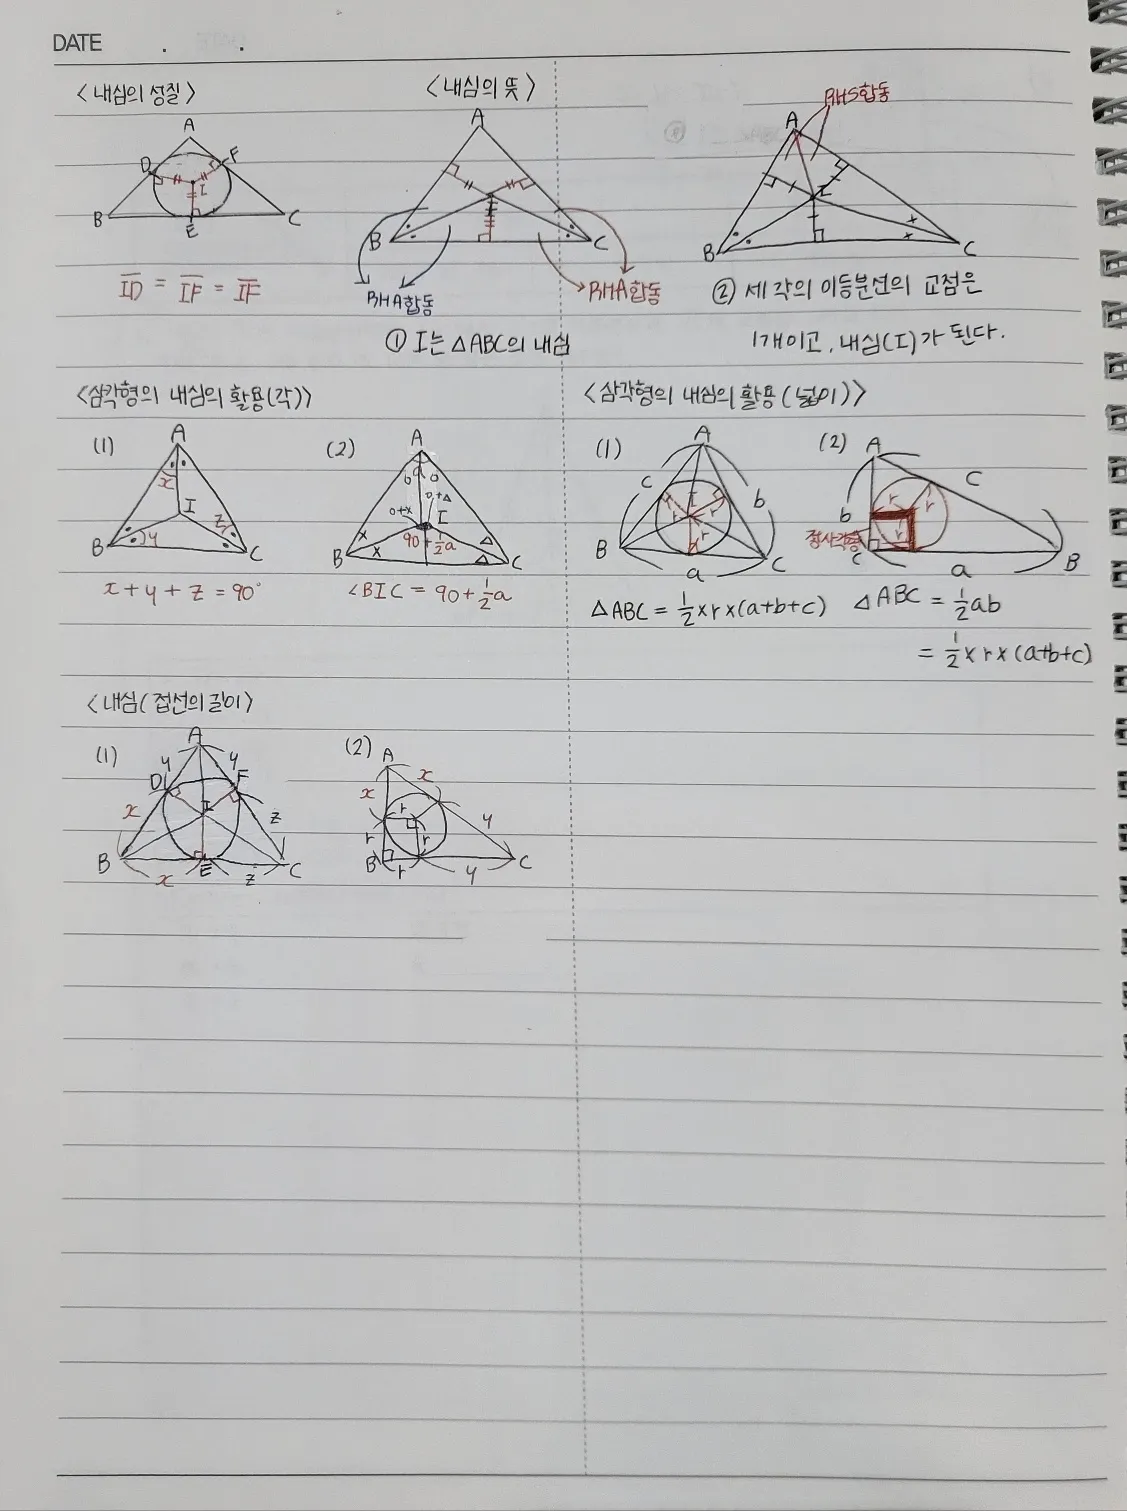 DATE . .
<내심의 성질>
A
D
F
I
B
E
C
ID = IF = IF
<내심의 뜻>
A
B
C
RHA합동
RHA합동
① I는 △ABC의 내심
RHS합동
A
I
B
C
② 세 각의 이등분선의 교점은
1개이고, 내심(I)가 된다.
<삼각형의 내심의 활용(각)>
(1)
A
x
I
z
B
y
C
x+y+z=90°
(2)
A
o o
o+x
o+△
I
x
x
90+½a
△
△
B
C
∠BIC = 90+½a
<삼각형의 내심의 활용(넓이)>
(1)
A
c
I
b
r
r
r
B
a
C
△ABC = ½×r×(a+b+c)
(2)
A
c
r
r
b
r
정사각형
C
a
B
△ABC = ½ab
= ½×r×(a+b+c)
<내심(접선의 길이>
(1)
A
y
y
D
F
x
I
z
B
E
C
x
z
(2)
A
x
x
r
y
r
r
B
r
y
C